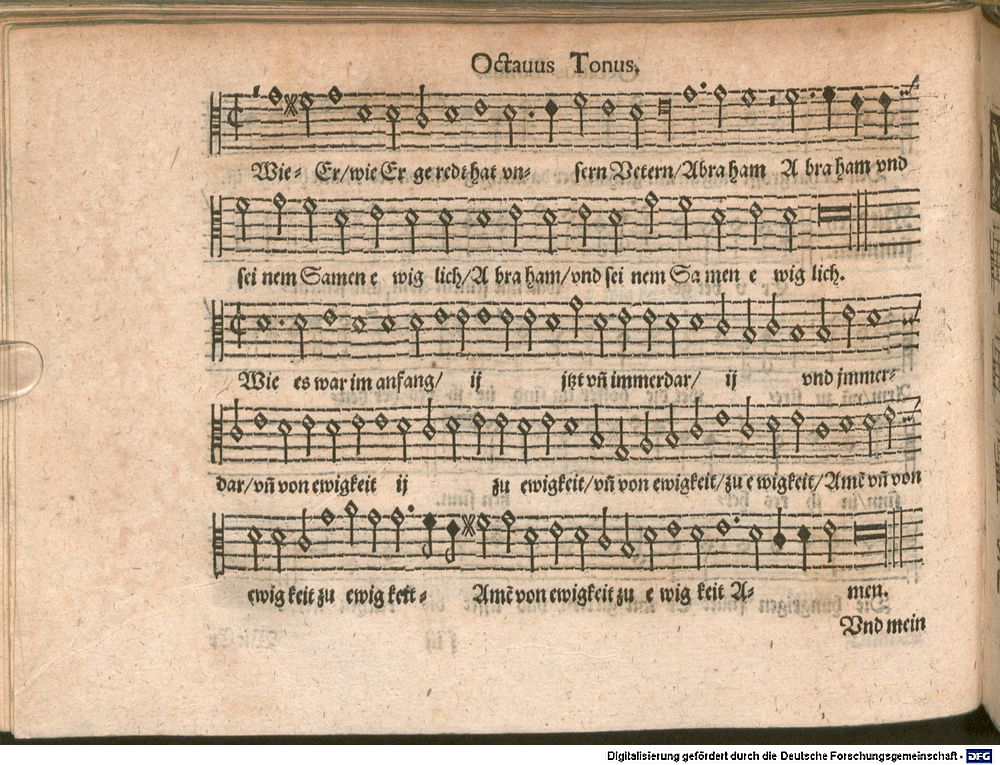 Octauus Tonus.
Wie- Er/wie Er ge redt hat vn- sern Vetern/Abra ham A bra ham vnd
sei nem Samen e wig lich/A bra ham/vnd sei nem Sa men e wig lich.
Wie es war im anfang/ ij jtzt vñ immerdar/ ij vnd jmmer-
dar/vñ von ewigkeit ij zu ewigkeit/vñ von ewigkeit/zu e wigkeit/Amẽ vñ von
ewig keit zu ewig keit- Amẽ von ewigkeit zu e wig keit A- men.
Vnd mein
Digitalisierung gefördert durch die Deutsche Forschungsgemeinschaft - DFG